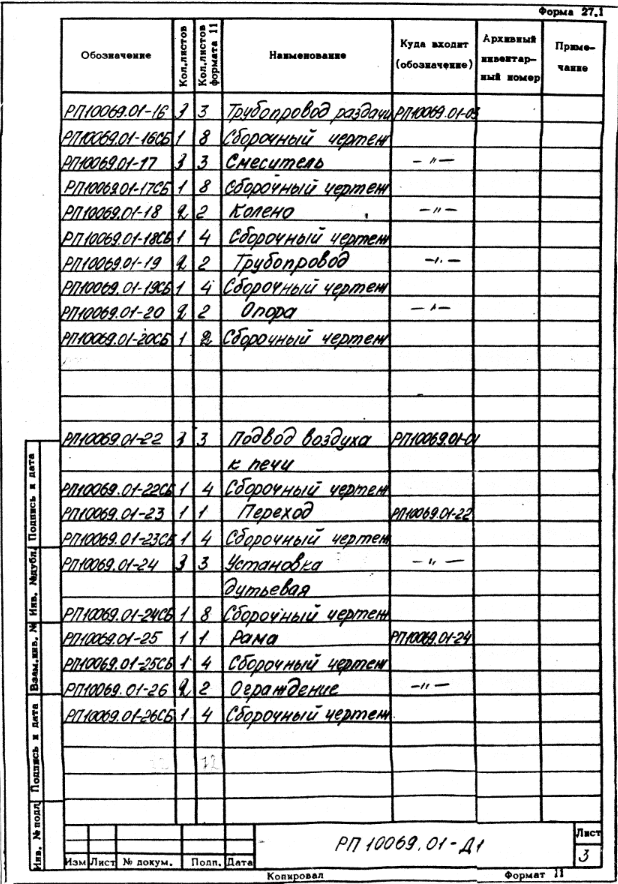 Форма 27.1
Обозначение Кол.листов Кол.листов формата 11 Наименование Куда входит (обозначение) Архивный инвентарный номер Примечание
РП10069.01-16 3 3 Трубопровод раздачи РП10069.01-03
РП10069.01-16СБ 1 8 Сборочный чертеж
РП10069.01-17 3 3 Смеситель —〃—
РП10069.01-17СБ 1 8 Сборочный чертеж
РП10069.01-18 2 2 Колено —〃—
РП10069.01-18СБ 1 4 Сборочный чертеж
РП10069.01-19 2 2 Трубопровод —〃—
РП10069.01-19СБ 1 4 Сборочный чертеж
РП10069.01-20 2 2 Опора —〃—
РП10069.01-20СБ 1 2 Сборочный чертеж
РП10069.01-22 3 3 Подвод воздуха РП10069.01-01
к печи
РП10069.01-22СБ 1 4 Сборочный чертеж
РП10069.01-23 1 1 Переход РП10069.01-22
РП10069.01-23СБ 1 4 Сборочный чертеж
РП10069.01-24 3 3 Установка —〃—
дутьевая
РП10069.01-24СБ 1 8 Сборочный чертеж
РП10069.01-25 1 1 Рама РП10069.01-24
РП10069.01-25СБ 1 4 Сборочный чертеж
РП10069.01-26 2 2 Ограждение —〃—
РП10069.01-26СБ 1 4 Сборочный чертеж
Инв. № подл. Подпись и дата Взам.инв. № Инв. №дубл. Подпись и дата
РП 10069.01-Д1
Лист
3
Изм Лист № докум. Подп. Дата
Копировал Формат 11